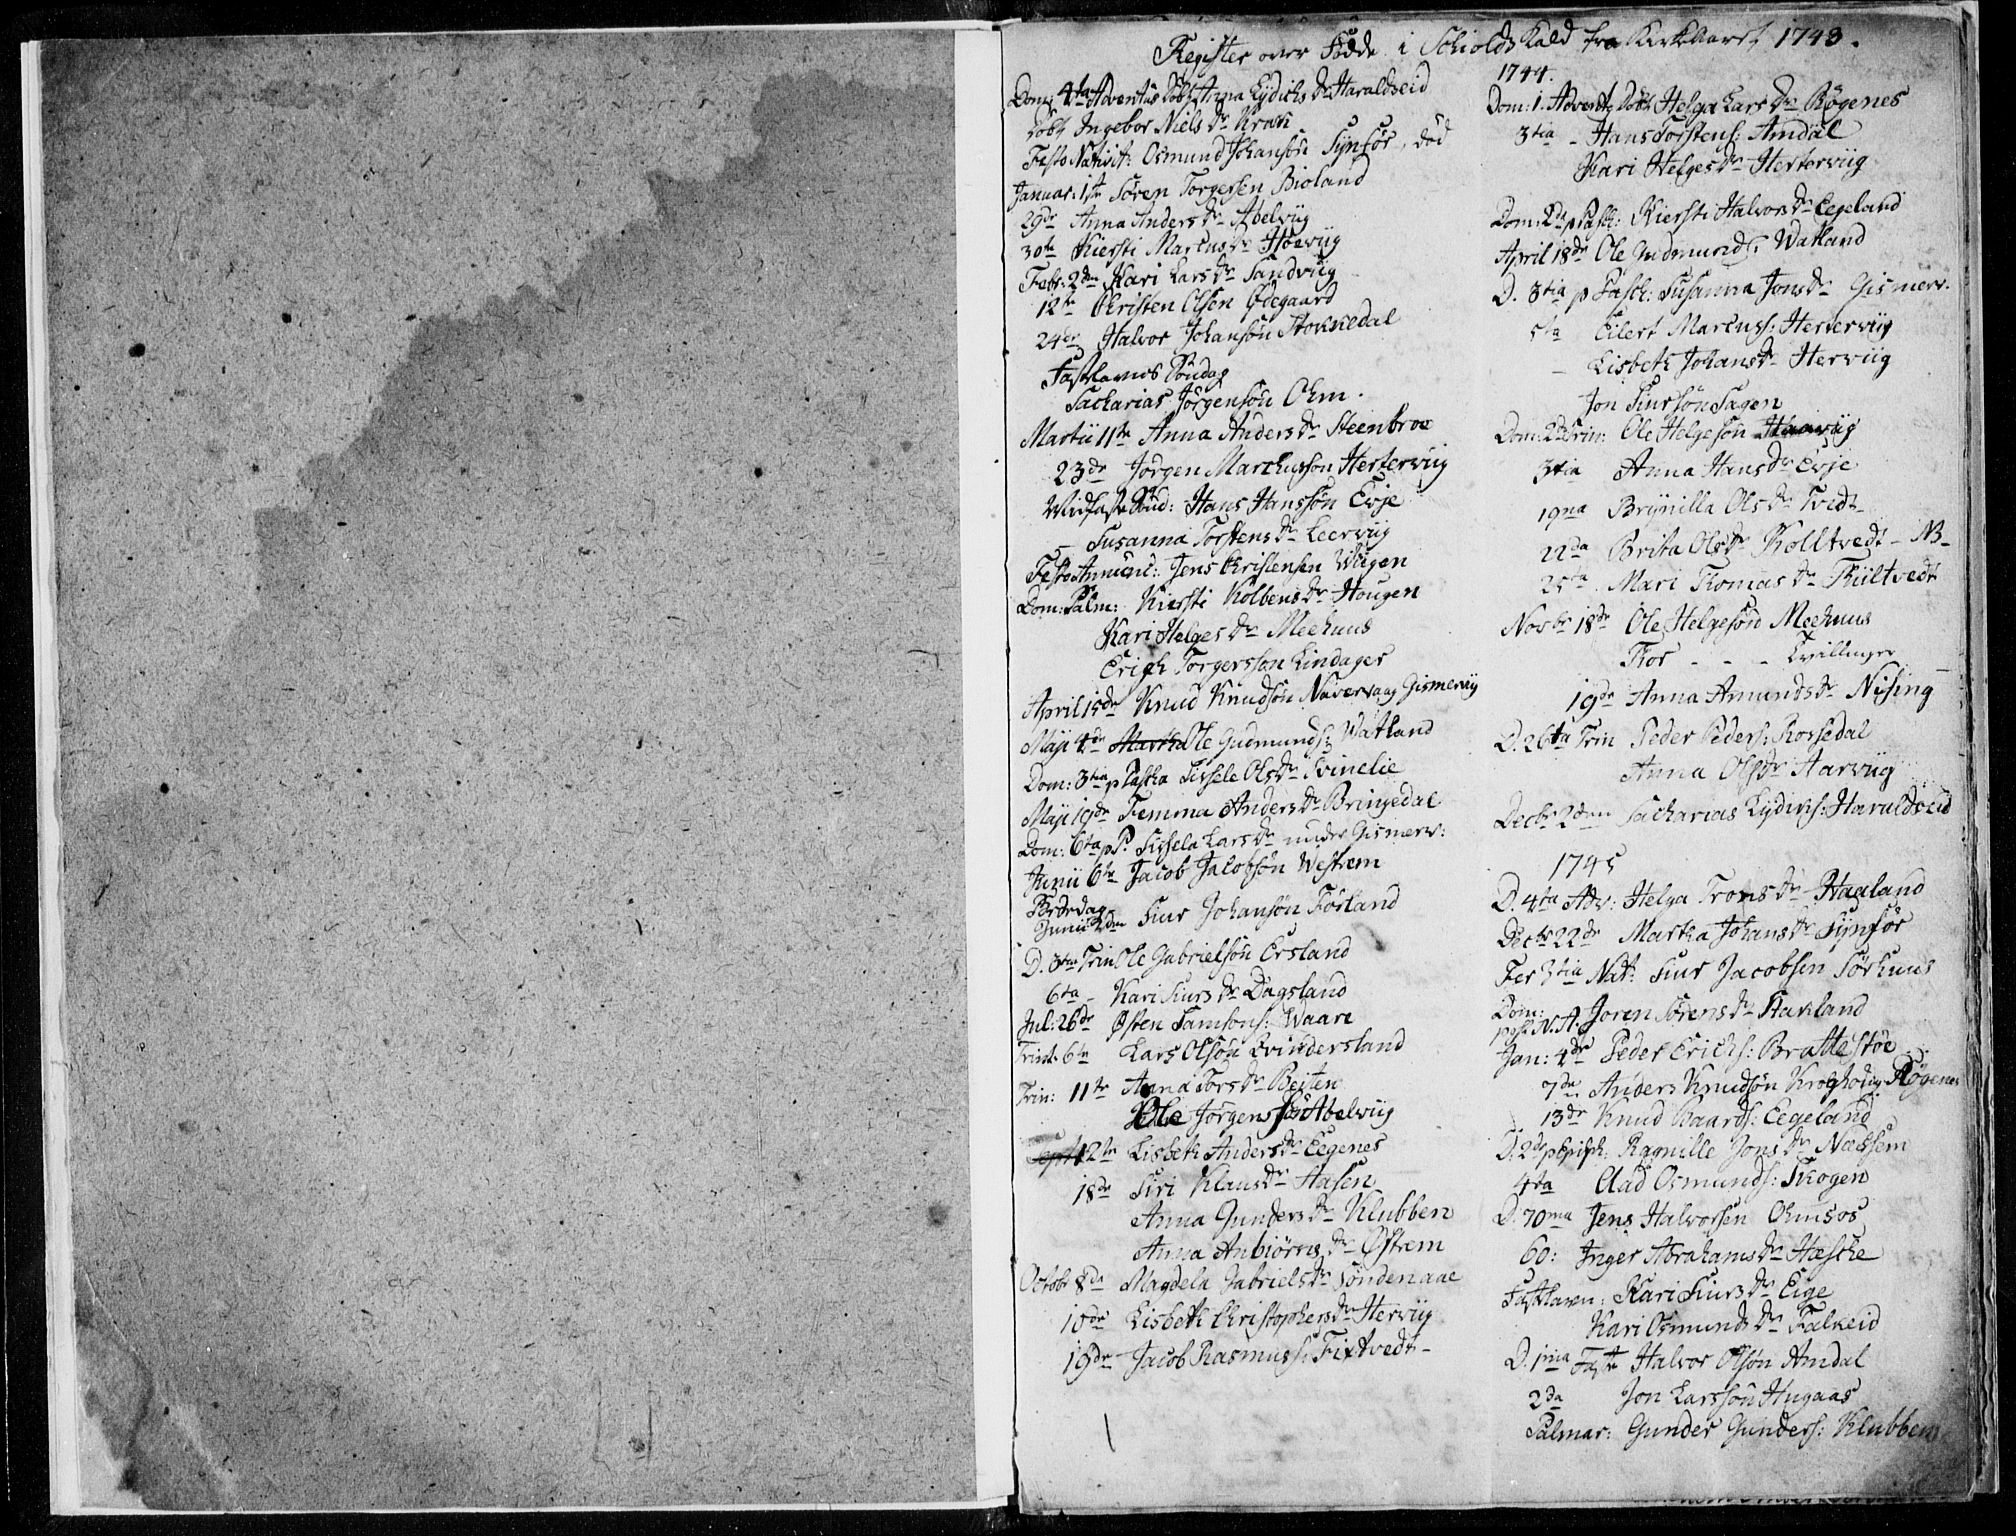 Register over Födde i Schiolds Kald fra Kirkeaaret 1743.
Dom: 4ta Adventus Döbt Anna Eydichs Dr Haraldseid
Döbt Ingebor Niels Dr
Festo Nativit: Osmund Johansön Synför, död
Januar: 1ste Sören Torgersen Bioland
29de Anna Anders Dr Abelviig
30te Kiersti Marcus Dr
Febr: 2den Kari Lars Dr Sandviig
12te Christen Olsen Ödegaard
24de Halvor Johansön Stokkedal
Fastelavns Söndag
Sacharias Jörgensön Ohm.
Martii 11te Anna Anders Dr Steenbroe
23de Jörgen Marchusson Herterviig
Midfaste Sönd: Hans Hanssön Evje
- Susanna Torstens Dr Leerviig
Festo Annunc: Jens Christensen Wiigen
Dom: Palm: Kiersti Kolbens Dr Hougen
Kari Helges Dr Meehuus
Erich Torgersson Lindager
April 15de Knud Knudsön Naververaag Gismerviig
Maji 4de Ole Gudmunds: Watland
Dom: 3tia p Pascha Sissele Ols Dr Svinelie
Maji 10de Femma Anders Dr Bringedal
Dom: 6ta p P. Sissela Lars Dr nedre Gismerv:
Junii 6te Jacob Jacobsön Westrem
Bededag
Junii 12den Siur Johansön Förland
D. 3tia Trin Ole Gabrielsön Ersland
6ta - Kari Siurs Dr Dagsland
Jul: 26de Østen Samsons: Waare
Trinit. 6te Lars Olsön Qvindersland
Trin: 11te Anna Tors Dr Beiten
Ole Jörgensön Abelviig
12te Lisbeth Anders Dr Eegenes
18de Siri Klaus Dr Aasen
Anna Gunders Dr Klubben
Anna Anbiörns Dr Østrem
Octobr 8de Magdela Gabriels Dr Söndenaae
10de Lisbeth Christophers Dr Herviig
19de Jacob Rasmuss: Fixtvedt -
1744.
Dom: 1. Advents Döbt Helga Lars Dr Røgenes
3tia - Hans Torstens: Amdal
Kari Helges Dr Herterviig
Dom: 2da p Pasch: Kiersti Halvors Dr Eegeland
April 18de Ole Gudmunds: Watland
D. 3tia p Pasch: Susanna Jons Dr Gismerv.
5ta Eilert Marcuss: Herterviig
- Lisbeth Johans Dr Herviig
Jon Siursön Sagen
Dom: 2da Trin: Ole Helgesön Haaviig
3tia Anna Hans Dr Evje
19na Brynilla Ols Dr Tvedt
22da Brita Ols Dr Kolltvedt - NB -
25ta Mari Thomas Dr Fliiltvedt
Novbr 18de Ole Helgesön Meehuus
Thor - - - Tvillinger
19de Anna Amunds Dr Nising
D. 26ta Trin Peder Peders: Rossedal
Anna Ols Dr Aarviig
Decbr 2den Sacharias Eydichs: Haraldseid
1745
D. 4ta Adv: Helga Trons Dr Haaland
Decbr 22de Martha Johans Dr Synför
Fer 3tia Nat: Siur Jacobsen Sörhuus
Dom:
post N. A. Joren Sörens Dr Haveland
Jan: 4de Peder Erichs: Brattestöe
7de Anders Knudsön Røgenes
13de Knud Baards: Eegeland
D: 2da p Epiph: Ragnille Jons Dr Nœssem
4ta Clad Osmunds: Skogen
D. 70ma Jens Halvorsen Ohmsos
60: Inger Abrahams Dr Hœske
Fastlavn: Kari Siurs Dr Eige
Kari Osmunds Dr Falkeid
D. 1ma Faste Halvor Olsön Amdal
2da Jon Larssön Hugaas
Palmar: Gunder Gunders: Klubben